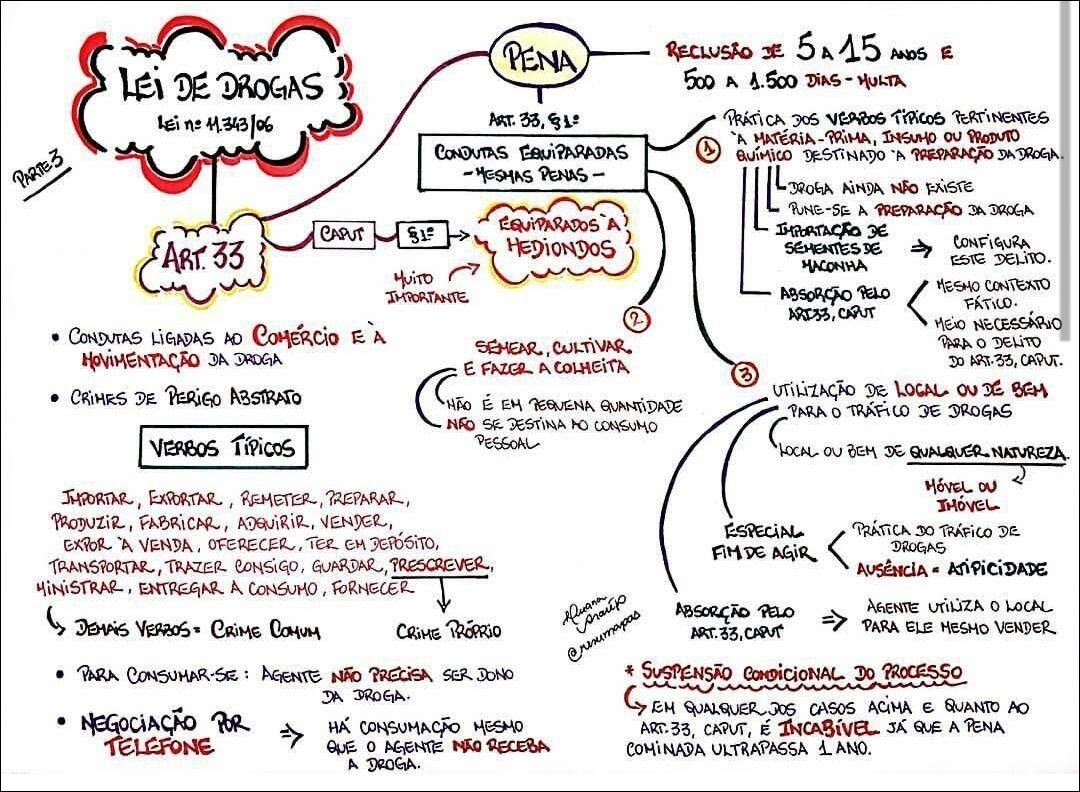 LEI DE DROGAS
LEI Nº 11.343/06
PARTE 3
PENA
RECLUSÃO DE 5 A 15 ANOS E
500 A 1.500 DIAS-MULTA
ART. 33
CAPUT
§1º
EQUIPARADOS À
HEDIONDOS
MUITO
IMPORTANTE
ART. 33, §1º
CONDUTAS EQUIPARADAS
- MESMAS PENAS -
1
PRÁTICA DOS VERBOS TÍPICOS PERTINENTES
À MATÉRIA-PRIMA, INSUMO OU PRODUTO
QUÍMICO DESTINADO À PREPARAÇÃO DA DROGA.
DROGA AINDA NÃO EXISTE
PUNE-SE A PREPARAÇÃO DA DROGA
IMPORTAÇÃO DE
SEMENTES DE
MACONHA
⇒ CONFIGURA
ESTE DELITO.
ABSORÇÃO PELO
ART33, CAPUT
MESMO CONTEXTO
FÁTICO.
MEIO NECESSÁRIO
PARA O DELITO
DO ART.33, CAPUT.
2
SEMEAR, CULTIVAR
E FAZER A COLHEITA
NÃO É EM PEQUENA QUANTIDADE
NÃO SE DESTINA AO CONSUMO
PESSOAL
3
UTILIZAÇÃO DE LOCAL OU DE BEM
PARA O TRÁFICO DE DROGAS
LOCAL OU BEM DE QUALQUER NATUREZA.
MÓVEL OU
IMÓVEL
ESPECIAL
FIM DE AGIR
PRÁTICA DO TRÁFICO DE
DROGAS
AUSÊNCIA = ATIPICIDADE
ABSORÇÃO PELO
ART.33, CAPUT
⇒ AGENTE UTILIZA O LOCAL
PARA ELE MESMO VENDER
• CONDUTAS LIGADAS AO COMÉRCIO E À
MOVIMENTAÇÃO DA DROGA
• CRIMES DE PERIGO ABSTRATO
VERBOS TÍPICOS
IMPORTAR, EXPORTAR, REMETER, PREPARAR,
PRODUZIR, FABRICAR, ADQUIRIR, VENDER,
EXPOR À VENDA, OFERECER, TER EM DEPÓSITO,
TRANSPORTAR, TRAZER CONSIGO, GUARDAR, PRESCREVER,
MINISTRAR, ENTREGAR A CONSUMO, FORNECER
DEMAIS VERBOS = CRIME COMUM
CRIME PRÓPRIO
• PARA CONSUMAR-SE: AGENTE NÃO PRECISA SER DONO
DA DROGA.
• NEGOCIAÇÃO POR
TELEFONE
⇒ HÁ CONSUMAÇÃO MESMO
QUE O AGENTE NÃO RECEBA
A DROGA.
Araújo
@resumapas
* SUSPENSÃO CONDICIONAL DO PROCESSO
EM QUALQUER DOS CASOS ACIMA E QUANTO AO
ART.33, CAPUT, É INCABÍVEL JÁ QUE A PENA
COMINADA ULTRAPASSA 1 ANO.